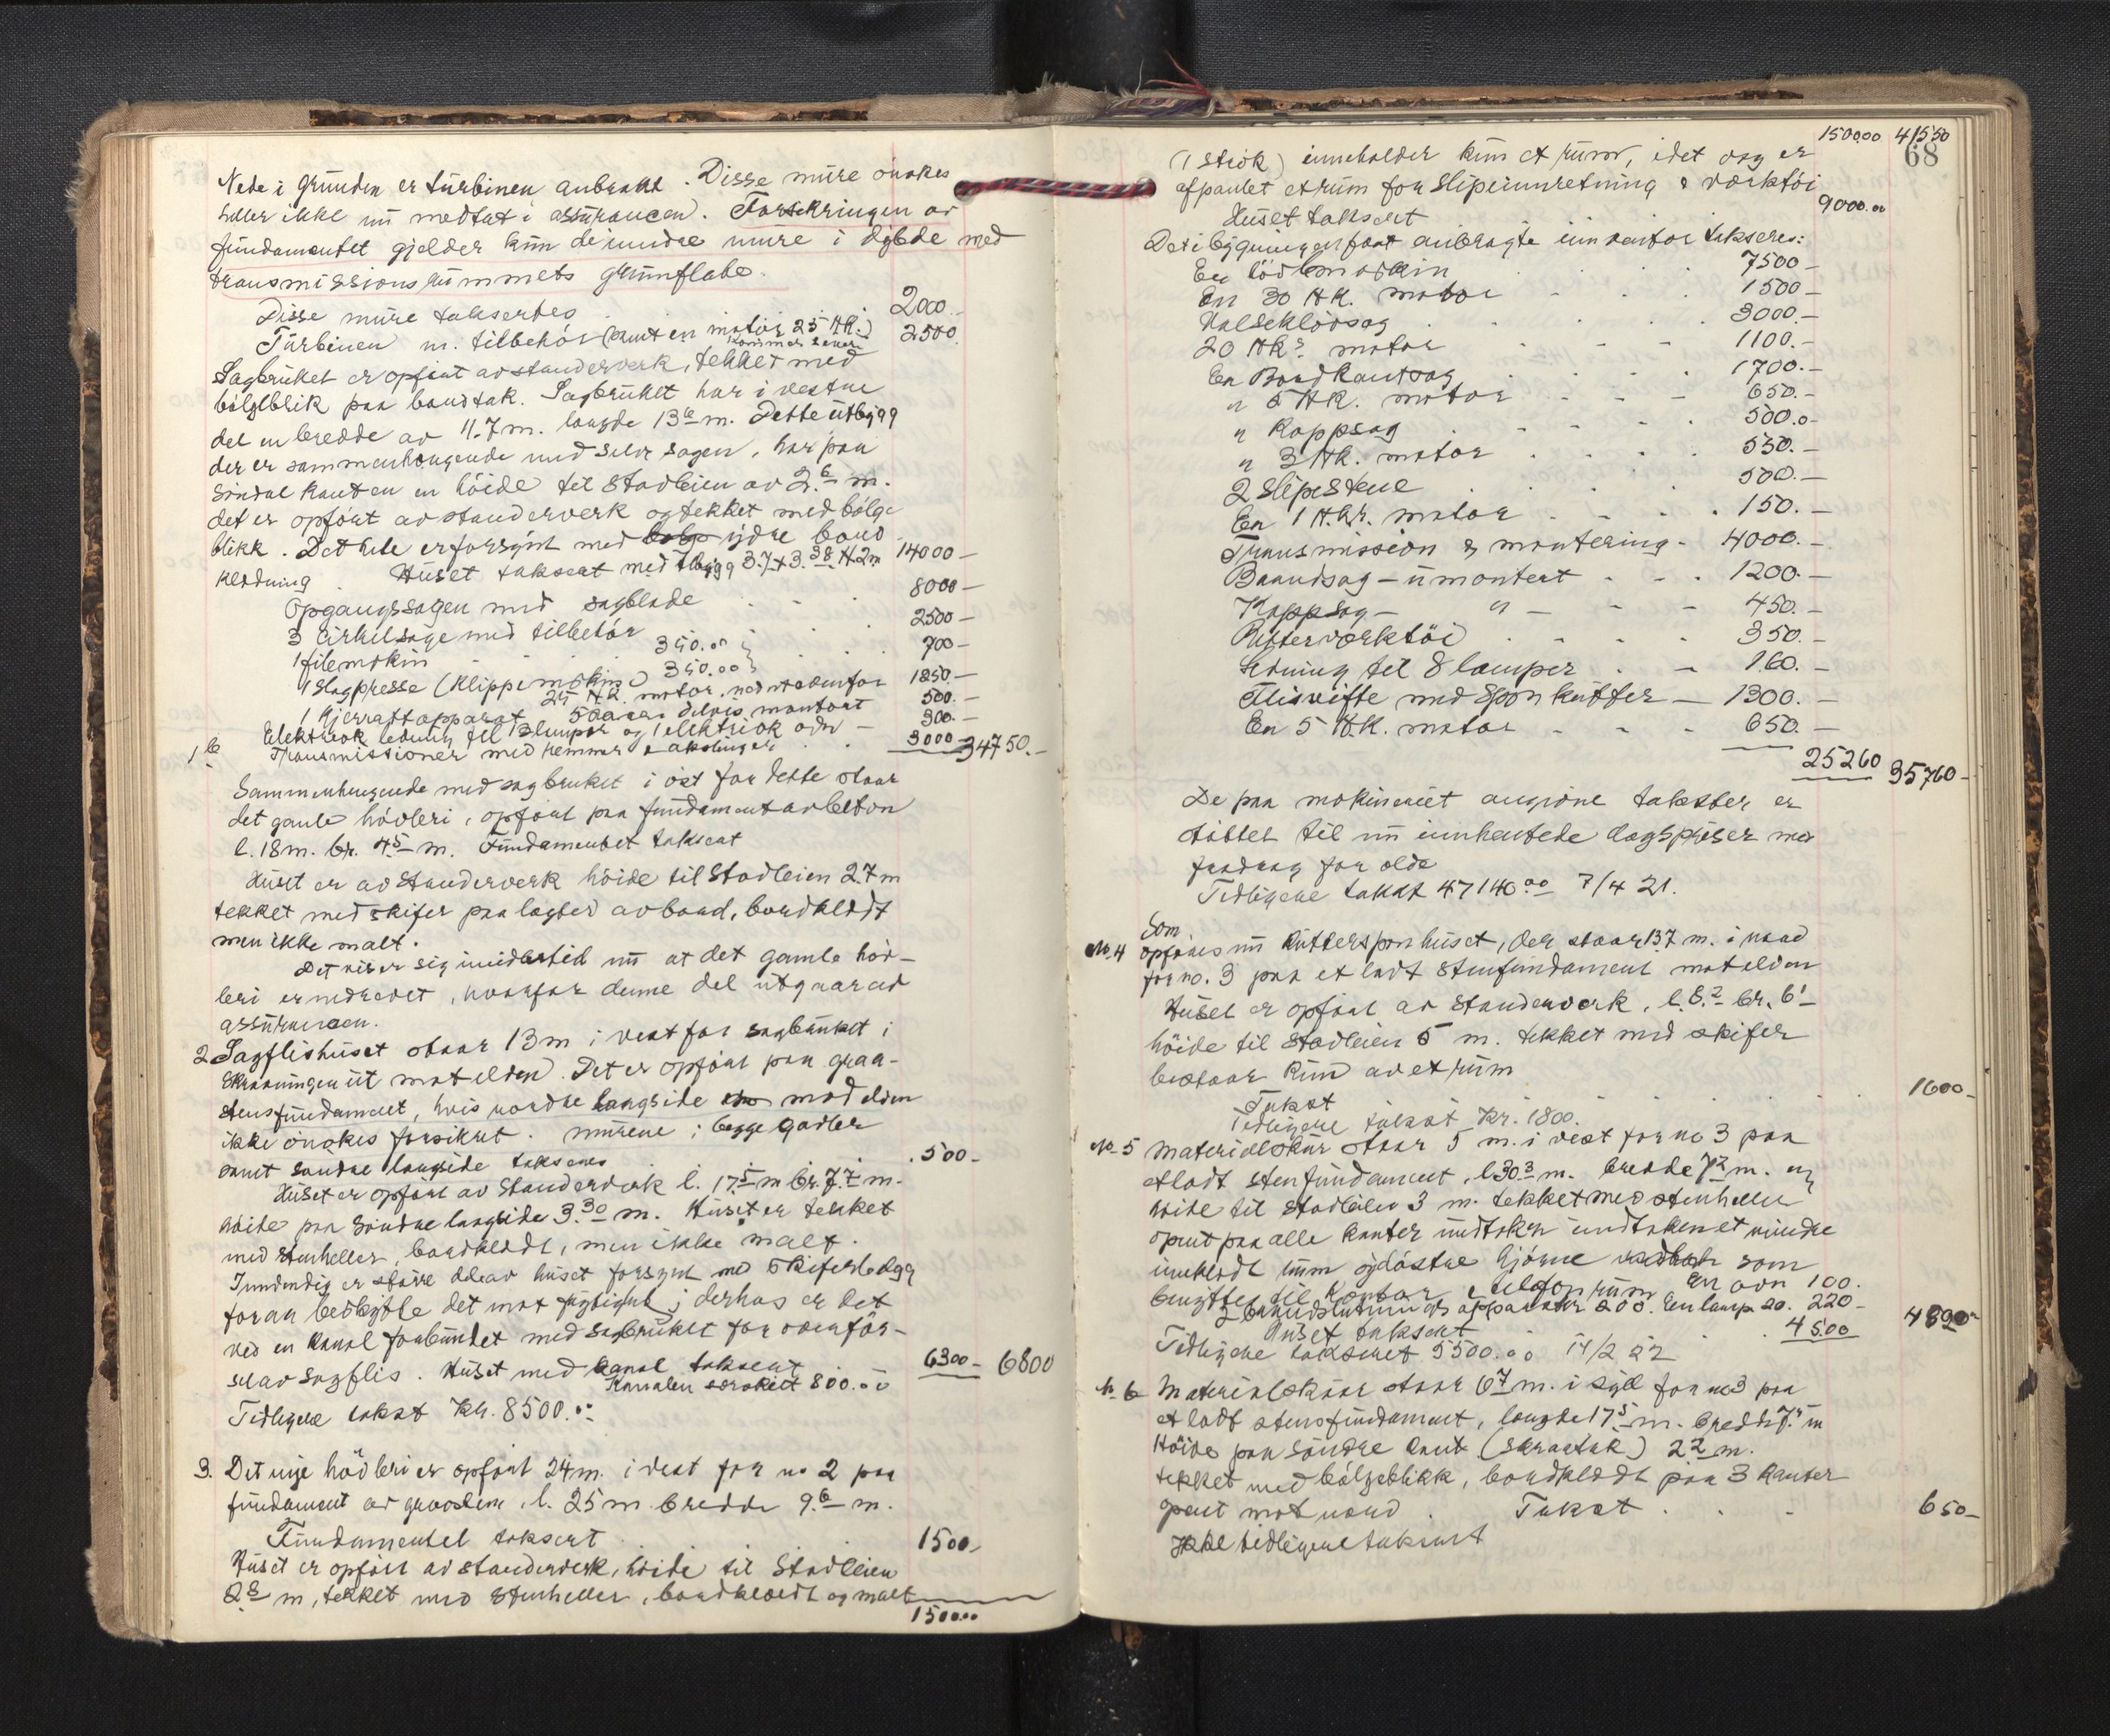 Nede i grunden er turbinen anbrakt. Disse mure önskes
heller ikke nu medtat i assurancen. Forsikringen av
fundamentet gjelder kun de indre mure i dybde med
transmissionsrummets grunflate.
Disse mure takseredes 2000.-
Turbinen m. tilbehör (samt en motor 25 HK.) 2500.
kommer senere
Sagbruket er opfört av standerverk, tekket med
bölgeblik paa bordtak. Sagbruket har i vestre
del en bredde av 11.7 m. længde 13 6 m. Dette utbygg
der er sammenhængende med selve sagen, har paa
söndre kanten en höide til Stadleien av 2.6 m.
det er opfört av standerverk og tekket med bölge
blikk. Det hele er forsynt med ydre bord
klædning. Huset taksert med tilbygg 3.7 + 3.38 H 2 m 14000 -
Opgangssagen med sagblade 8000 -
3 cirkelsage med tilbehör 2500 -
1 filemskin 350.00 700 -
1 Slagpresse (Klippemskine) 350.00
25 HK. motor. nævnt ovenfor 1250.-
1 Kjerrattapparat 500.00 delvis montert 500.-
Elektrisk ledning til 13 lamper og 1 elektrisk ovn - 300.-
Transmissioner med remmer & akslinger 3000 - 34750.-
1 b
Sammenhængende med sagbruket i öst for dette staar
det gamle hövleri, opfört paa fundament av beton
l. 18 m. br. 4 5 m. Fundamentet taksert
Huset er av Standerverk höide til Stadleien 2.7 m
tekket med skifer paa lagter av bord, bordklædt
men ikke malt.
Det viser sig imidlertid nu at det gamle höv-
leri er nedrevet, hvorfor denne del utgaar av
assurancen.
2. Sagflishuset staar 13 m i vest for sagbruket i
skraaningen ut mot elven. Det er opfört paa graa-
stensfundament, hvis nordre langside mod elven
ikke önskes forsikret. Murene i begge gavler
samt söndre langside takseres . 500 -
Huset er opfört av Standerverk l. 17.5 m br. 7.7 m.
höide paa söndre langside 3.30 m. Huset er tekket
med stenheller, bordklædt, men ikke malt.
Indvendig er större del av huset forsynt med skiferbelegg
foran beskytte det mot fugtighet; derhos er det
ved en kanal forbundet med sagbruket for overför-
sel av sagflis. Huset med kanal taksert 6300 - 6800
Kanalen særskilt 800.00
Tidligere takst Kr. 8500.00
3. Det nye hövleri er opfört 24 m. i vest for no 2 paa
fundament av graasten, l. 25 m. bredde 9.6 m.
Fundamentet taksert 1500 -
Huset er opfört av standerverk, höide til Stadleien
2 8 m, tekket med Stenheller, bordklædt og malt
1500.00
1500.00 41550
68
(1 strök) inneholder kun et rum, idet dog er
afpanlet et rum for Slipeinnretning & værktöi
Huset taksert 9000.00
Det i bygningen fast anbragte inventar takseres:
En hövlemaskin 7500 -
En 30 HK. motor 1500 -
Valseklövsag 3000.-
20 HKs. motor 1100.-
En Bordkantsag 1700.-
" 5 HK. motor 650.-
" Kappsag 500.0-
" 3 HK. motor 550.-
2 Slipestene 500.-
En 1 H.kr. motor 150.-
Transmission & montering - 4000.-
Baandsag - umontert 1200.-
Kappsag - " - 450.-
Kutterværktöi 350.-
Ledning til 8 lamper 160.-
Flisvifte med Spon kutter - 1300.-
En 5 H.K. motor 650.-
25260 35760 -
De paa maskineriet angivne takster er
støttet til nu innhentede dagspriser med
fradrag for ælde
Tidligere takst 47140.00 7/4 21.
Som
No. 4 opföres nu Kuttersponhuset, der staar 13.7 m. i nord
for no. 3 paa et ladt Stenfundament mot elven
Huset er opfört av Standerverk, l. 8.2 br. 6 1
höide til Stadleien 5 m. tekket med skifer
bestaar kun av et rum
Takst 1600 -
Tidligere takst Kr. 1800.
No. 5 Materialskur staar 5 m. i vest for no 3 paa
et ladt stenfundament, l 30 3 m. bredde 7 2 m. og
höide til Stadleien 3 m. tekket med stenheller
opent paa alle kanter undtaken undtaken et mindre
innklædt rum sydöstre hjörne som
benyttes til kontor & telefonrum En ovn 100.
2 brandslukningsapparater 200. En lampe 20. 220 -
Huset taksert 4500 4820 -
Tidligere taksert 5500.00 14/2 22
No. 6 Materialskur staar 6 7 m. i syd for no 3 paa
et ladt stensfundament, længde 17 5 m. bredde 7.5 m
Höide paa söndre kant (skraatak) 2 2 m.
tekket med bölgeblikk, bordklædt paa 3 kanter
opent mot nord. Takst 650 -
Ikke tidligere taksert